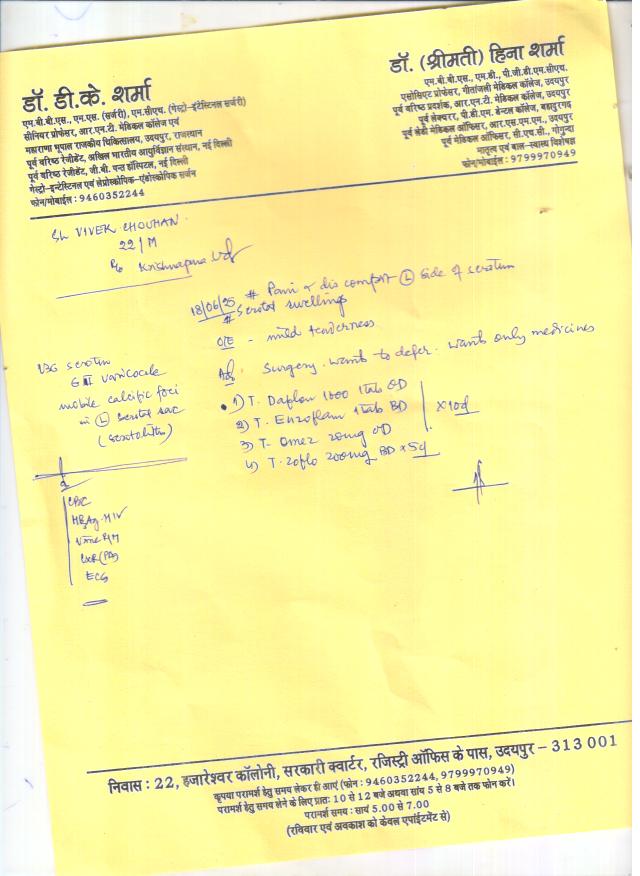 डॉ. डी.के. शर्मा
एम.बी.बी.एस., एम.एस. (सर्जरी), एम.सीएच. (गेस्ट्रो-इंटेस्टिनल सर्जरी)
सीनियर प्रोफेसर, आर.एन.टी. मेडिकल कॉलेज एवं
महाराणा भूपाल राजकीय चिकित्सालय, उदयपुर, राजस्थान
पूर्व वरिष्ठ रेजीडेंट, अखिल भारतीय आयुर्विज्ञान संस्थान, नई दिल्ली
पूर्व वरिष्ठ रेजीडेंट, जी.बी. पन्त हॉस्पिटल, नई दिल्ली
गेस्ट्रो-इन्टेस्टिनल एवं लेप्रोस्कोपिक-एंडोस्कोपिक सर्जन
फोन/मोबाईल : 9460352244
डॉ. (श्रीमती) हिना शर्मा
एम.बी.बी.एस., एम.डी., पी.जी.डी.एम.सीएच.
एसोसिएट प्रोफेसर, गीतांजली मेडिकल कॉलेज, उदयपुर
पूर्व वरिष्ठ प्रदर्शक, आर.एन.टी. मेडिकल कॉलेज, उदयपुर
पूर्व लेक्चरर, पी.डी.एम. डेन्टल कॉलेज, बहादुरगढ़
पूर्व लेडी मेडिकल ऑफिसर, आर.एस.एम.एम., उदयपुर
पूर्व मेडिकल ऑफिसर, सी.एच.सी., गोगुन्दा
मातृत्व एवं बाल-स्वास्थ्य विशेषज्ञ
फोन/मोबाईल : 9799970949
Sh VIVEK CHOUHAN
22/M
R/o Krishnapura
18/06/25 # Pain & discomfort (L) side of scrotum
# Scrotal swellings
O/E - mild tenderness
Adv Surgery. wants to defer. wants only medicines
1) T. Daflon 1000 1tab OD
2) T. Enzoflam 1tab BD
3) T- Omez 20mg OD
x 10d
4) T. Zoflo 200mg BD x 5d
USG scrotum
G II varicocele
mobile calcific foci
in (L) scrotal sac
(scrotolith)
CBC
HBsAg. HIV
Urine R/M
CXR (PA)
ECG
निवास : 22, हजारेश्वर कॉलोनी, सरकारी क्वार्टर, रजिस्ट्री ऑफिस के पास, उदयपुर – 313 001
कृपया परामर्श हेतु समय लेकर ही आएं (फोन : 9460352244, 9799970949)
परामर्श हेतु समय लेने के लिए प्रातः 10 से 12 बजे अथवा सांय 5 से 8 बजे तक फोन करें।
परामर्श समय : सायं 5.00 से 7.00
(रविवार एवं अवकाश को केवल एपाईंटमेंट से)